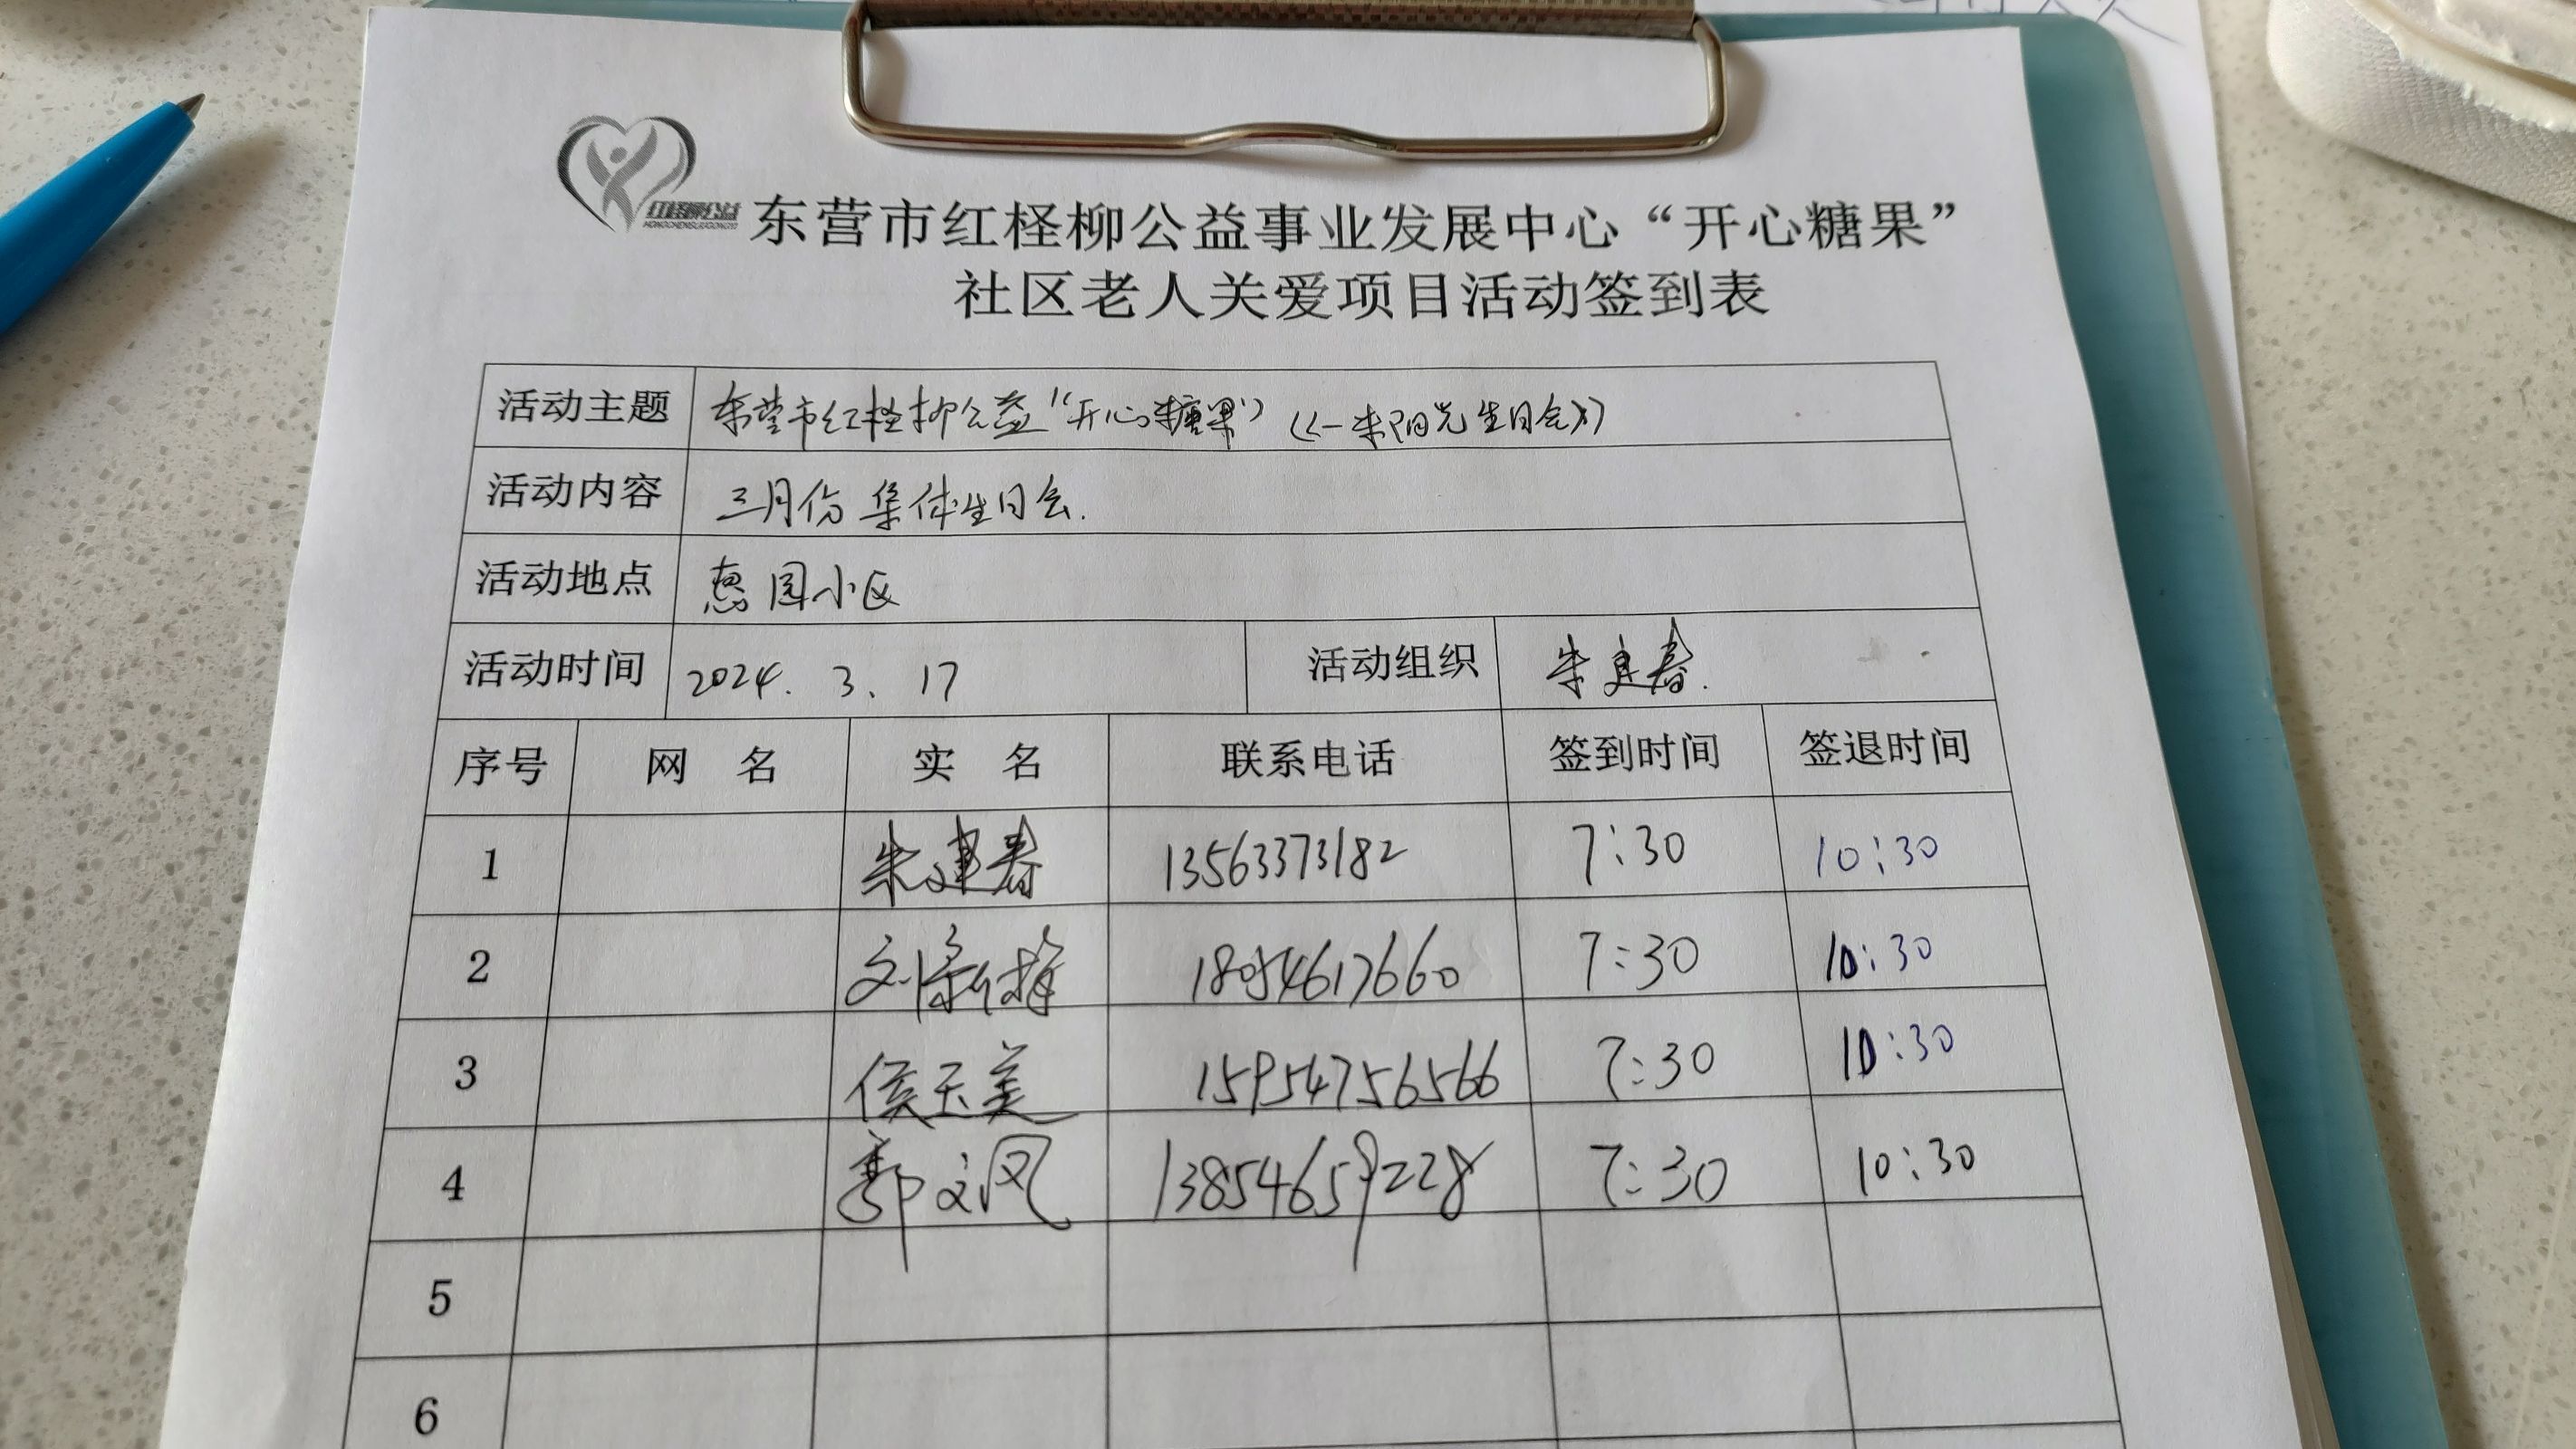 红柽柳公益
东营市红柽柳公益事业发展中心“开心糖果”
社区老人关爱项目活动签到表
活动主题 东营市红柽柳公益“开心糖果”《一米阳光生日会》
活动内容 三月份集体生日会.
活动地点 惠园小区
活动时间 2024.3.17 活动组织 朱建春.
序号 网名 实名 联系电话 签到时间 签退时间
1 朱建春 13563373182 7:30 10:30
2 18054617660 7:30 10:30
3 侯玉美 15954756566 7:30 10:30
4 鄢文凤 13854659228 7:30 10:30
5
6